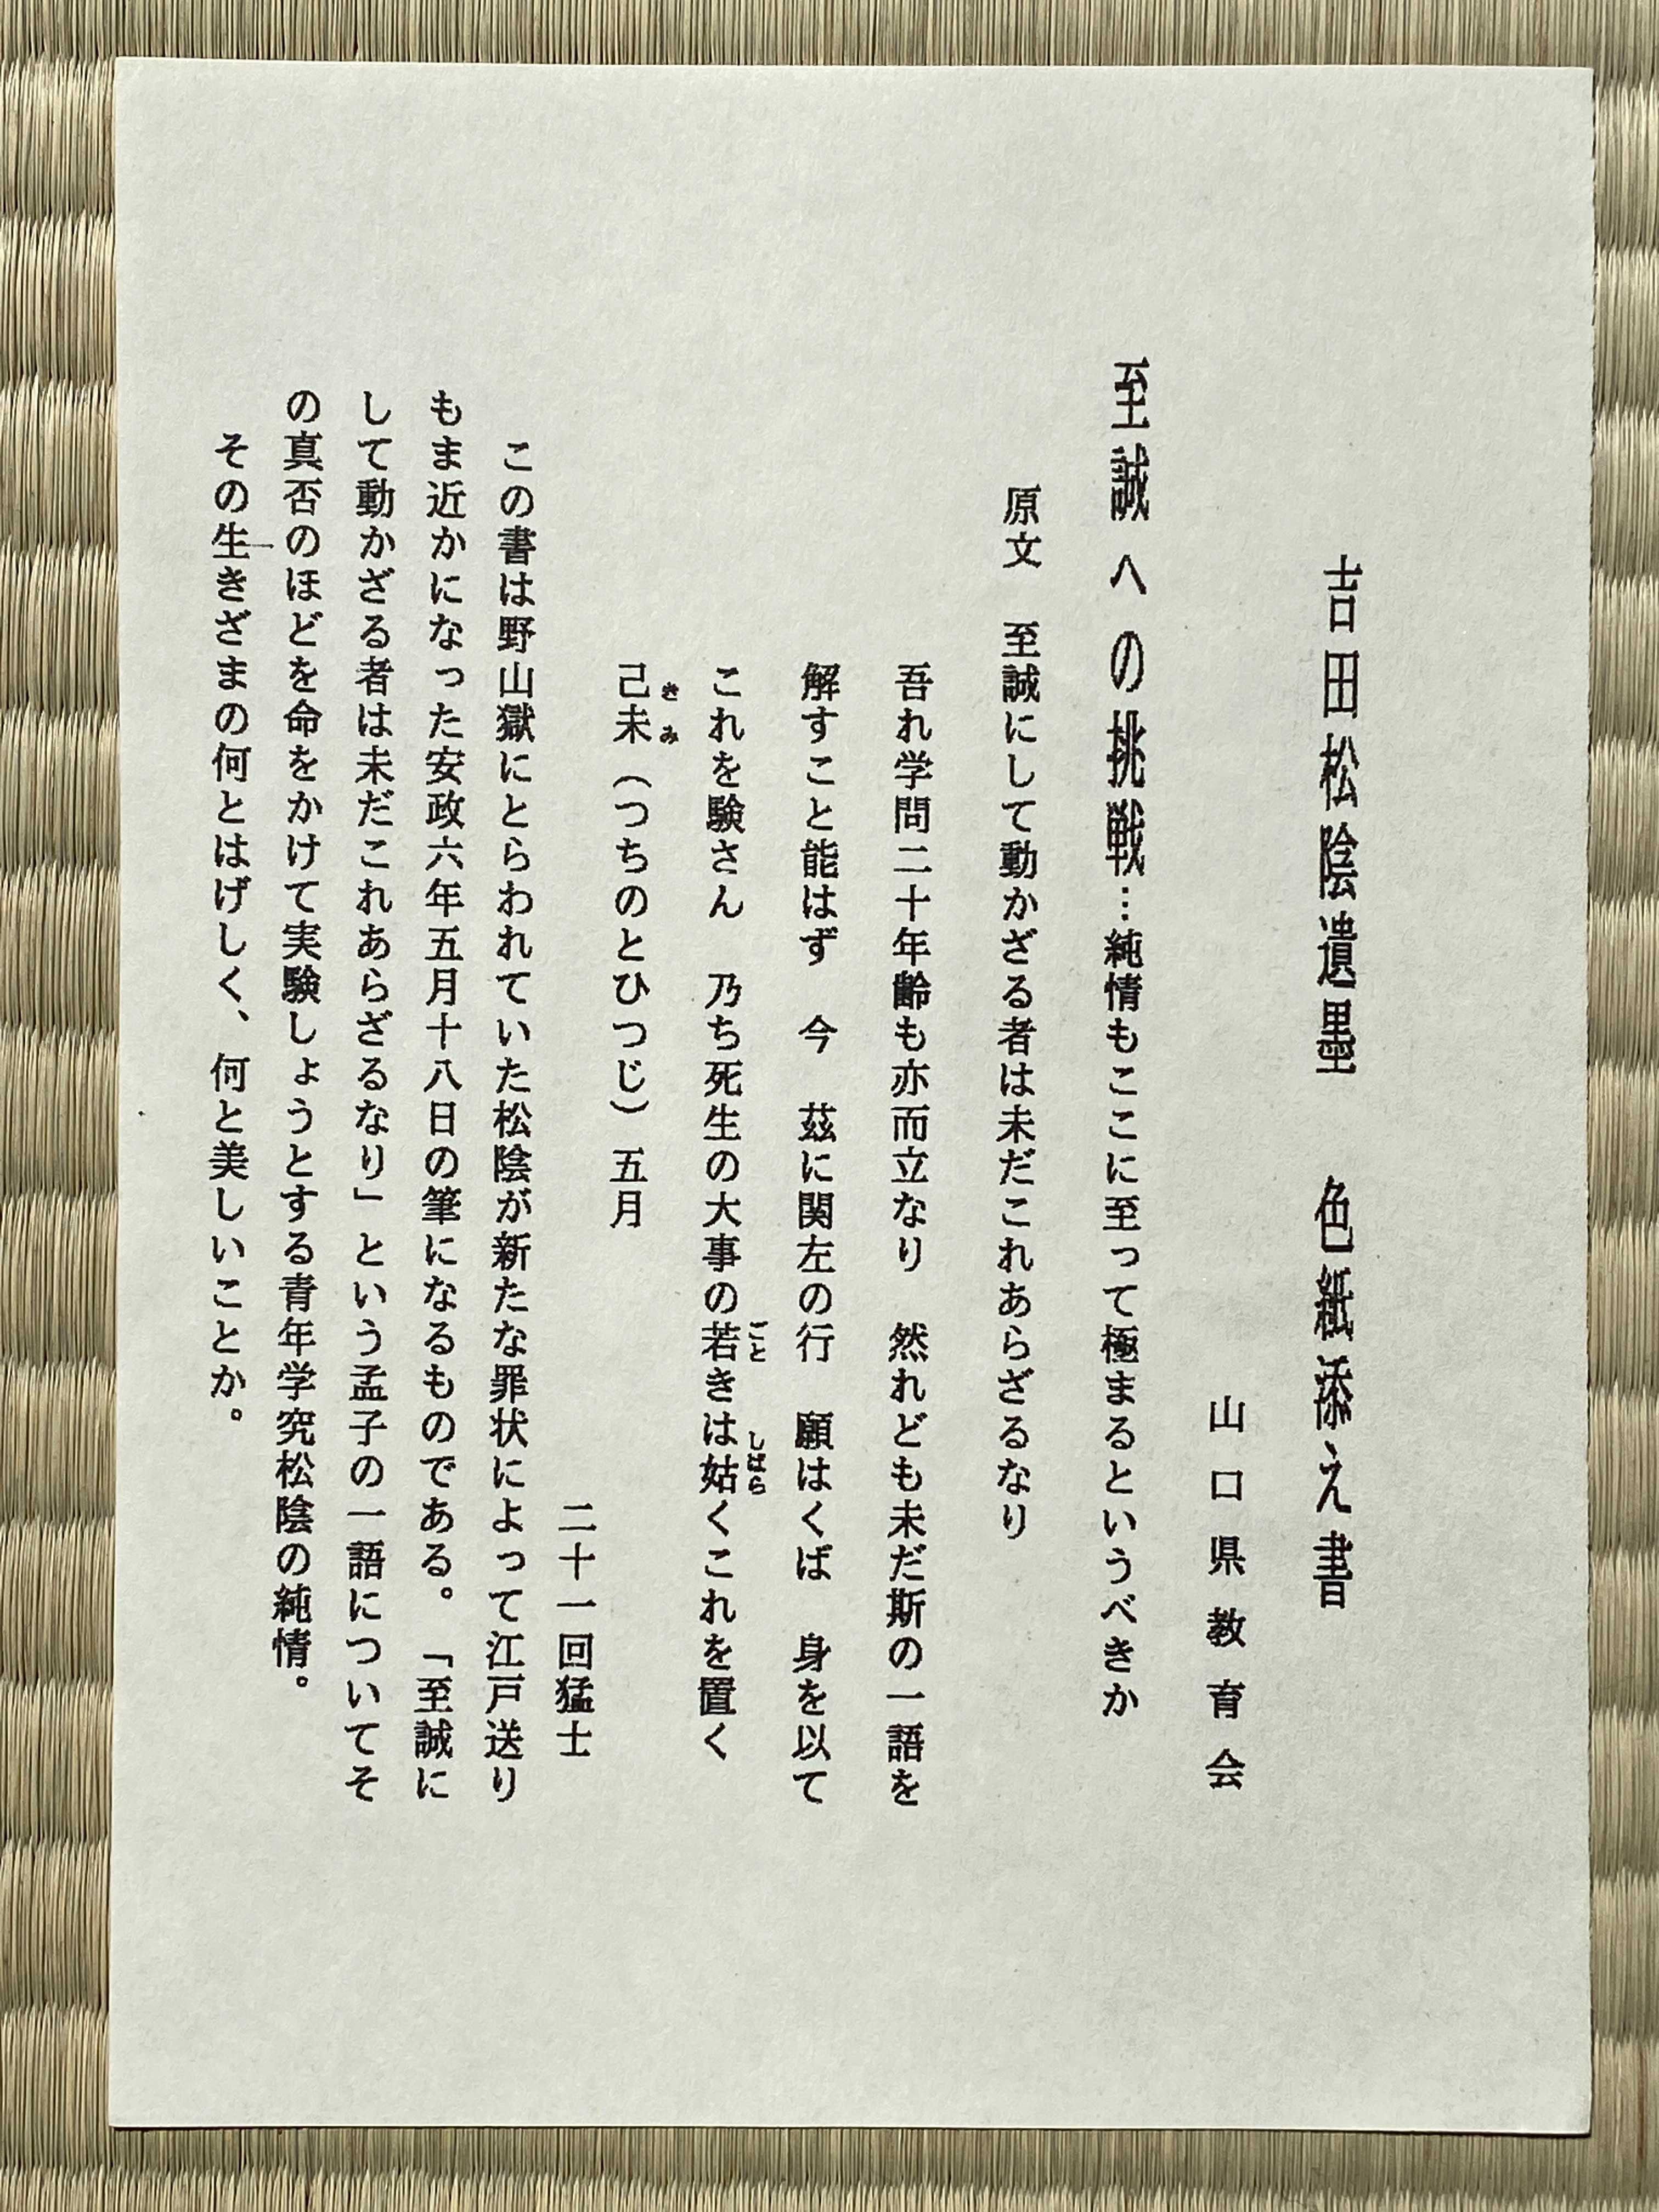 吉田松陰遺墨　色紙添え書
山口県教育会
至誠への挑戦…純情もここに至って極まるというべきか
原文　至誠にして動かざる者は未だこれあらざるなり
吾れ学問二十年齢も亦而立なり　然れども未だ斯の一語を
解すこと能はず　今　茲に関左の行　願はくば　身を以て
これを験さん　乃ち死生の大事の若きは姑くこれを置く
ごと　しばら
己未（つちのとひつじ）五月
きみ
二十一回猛士
この書は野山獄にとらわれていた松陰が新たな罪状によって江戸送り
もま近かになった安政六年五月十八日の筆になるものである。「至誠に
して動かざる者は未だこれあらざるなり」という孟子の一語についてそ
の真否のほどを命をかけて実験しょうとする青年学究松陰の純情。
その生きざまの何とはげしく、何と美しいことか。